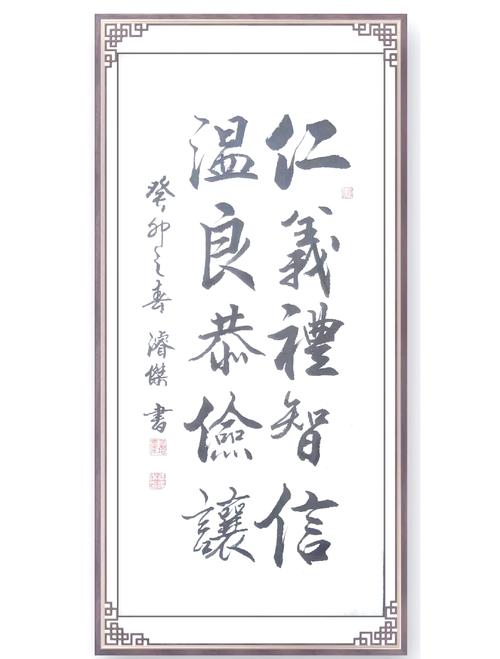 仁義禮智信
温良恭儉讓
癸卯之春 濬傑 書